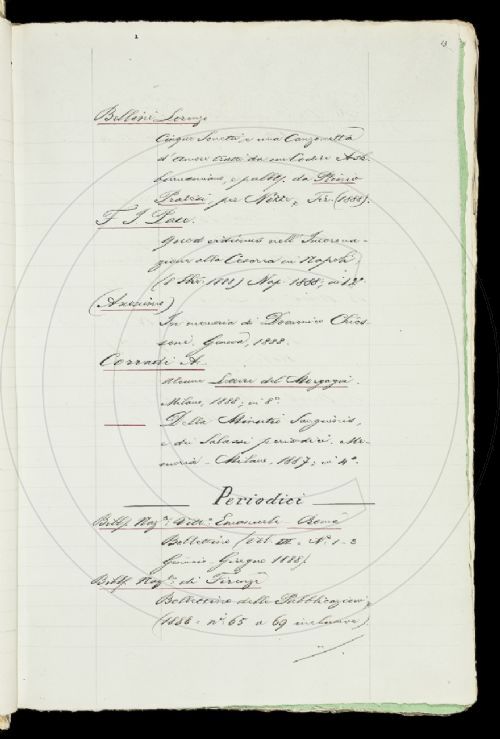 13
Bellini Lorenzo
Cinque Sonetti, e una Canzonetta
d'amore tratti da un Codice Ash-
burnamiano, e pubbl. da Plinio
Pratesi per Nozze, Fir. (1888).
F. I. Pace.
quod vidimus nell' Incorona-
zione alla Cesarea in Napoli,
(8 1888) Nap. 1888, in 12°
(Anonimo)
In memoria di Domenico Chios-
soni. Genova, 1888.
Corradi A.
alcune Lettere del Morgagni.
Milano, 1888; in 8°
Della Minutio Sanguinis,
e di Salassi periodici. Me-
moria - Milano, 1887; in 4°.
Periodici
Bibl. Naz. Vitt. Emanuele - Roma
Bollettino (Vol. III. N. 1-3
Gennaio Giugno 1888).
Bibl. Naz. di Firenze
Bollettino delle Pubblicazioni,
(1888 - n. 65 a 69 inclusive).